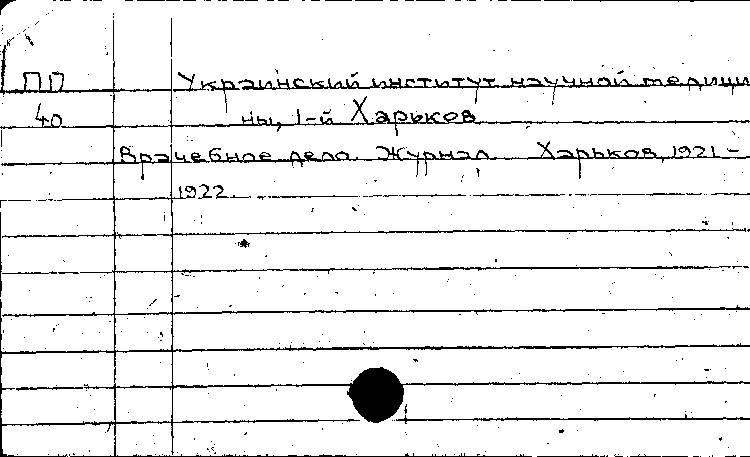 ПП Украинский институт научной медици
40 ны, 1-й Харьков
Врачебное дело. Журнал. Харьков, 1921 -
1922.